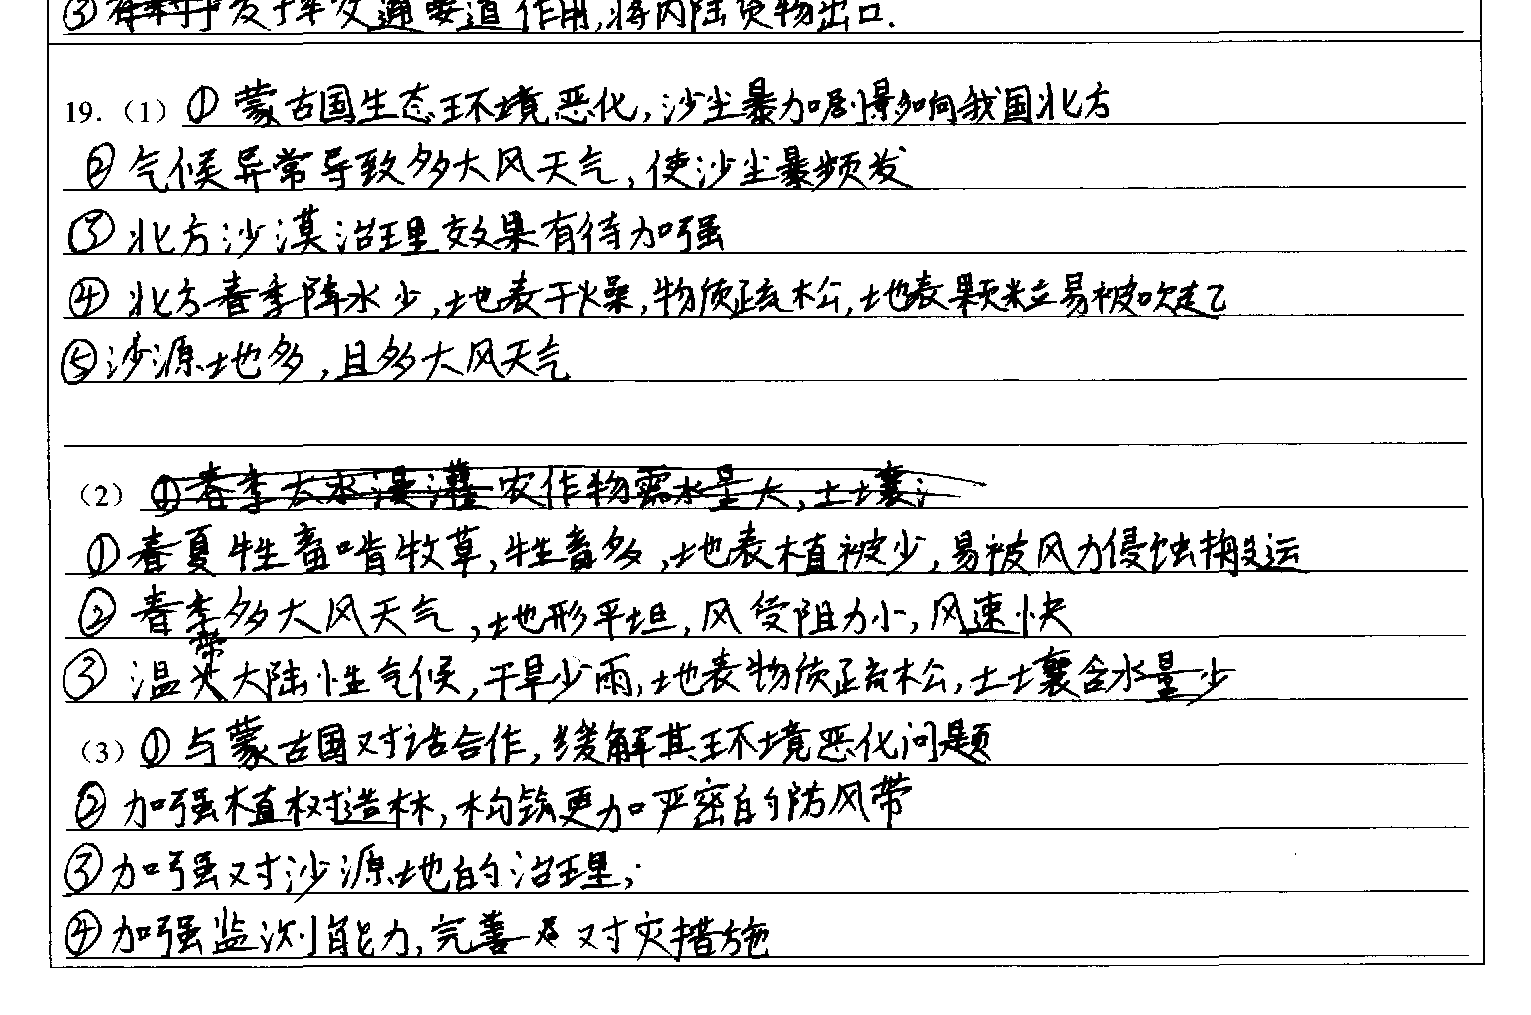 ③ 发挥交通要道作用,将内陆货物出口.
19.（1）① 蒙古国生态环境恶化,沙尘暴加剧影响我国北方
② 气候异常导致多大风天气,使沙尘暴频发
③ 北方沙漠治理效果有待加强
④ 北方春季降水少,地表干燥,物质疏松,地表颗粒易被吹走
⑤ 沙源地多,且多大风天气
（2）① 春季大水漫灌 农作物需水量大,土壤
① 春夏牲畜啃牧草,牲畜多,地表植被少,易被风力侵蚀搬运
② 春季多大风天气,地形平坦,风受阻力小,风速快
③ 温带大陆性气候,干旱少雨,地表物质疏松,土壤含水量少
（3）① 与蒙古国对话合作,缓解其环境恶化问题
② 加强植树造林,构筑更加严密的防风带
③ 加强对沙源地的治理;
④ 加强监测能力,完善 对灾措施